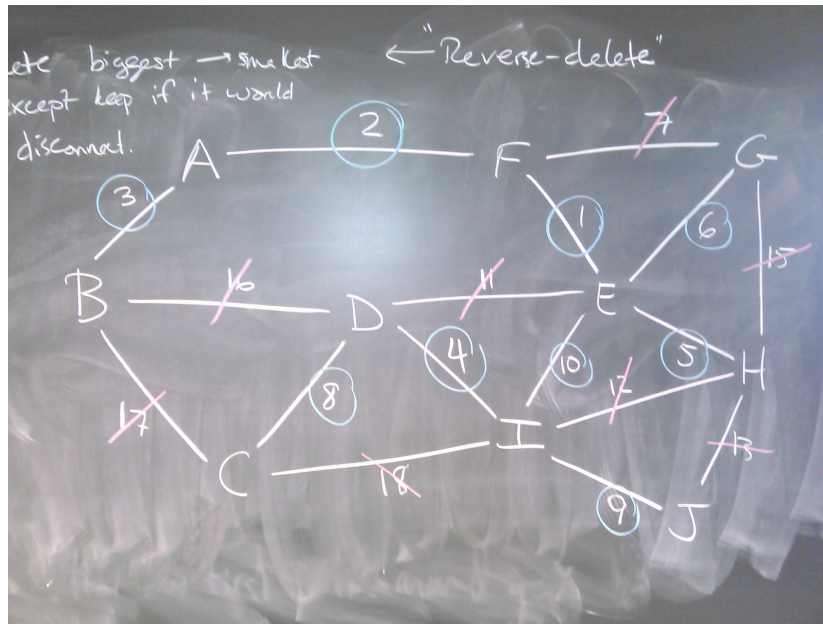 ete biggest → smallest ← "Reverse-delete"
except keep if it would
disconnect.
2
A F 7 G
3 1 6
16 11 15
B D E
4 10 5
8 12 H
17
I 13
C 18
9 J